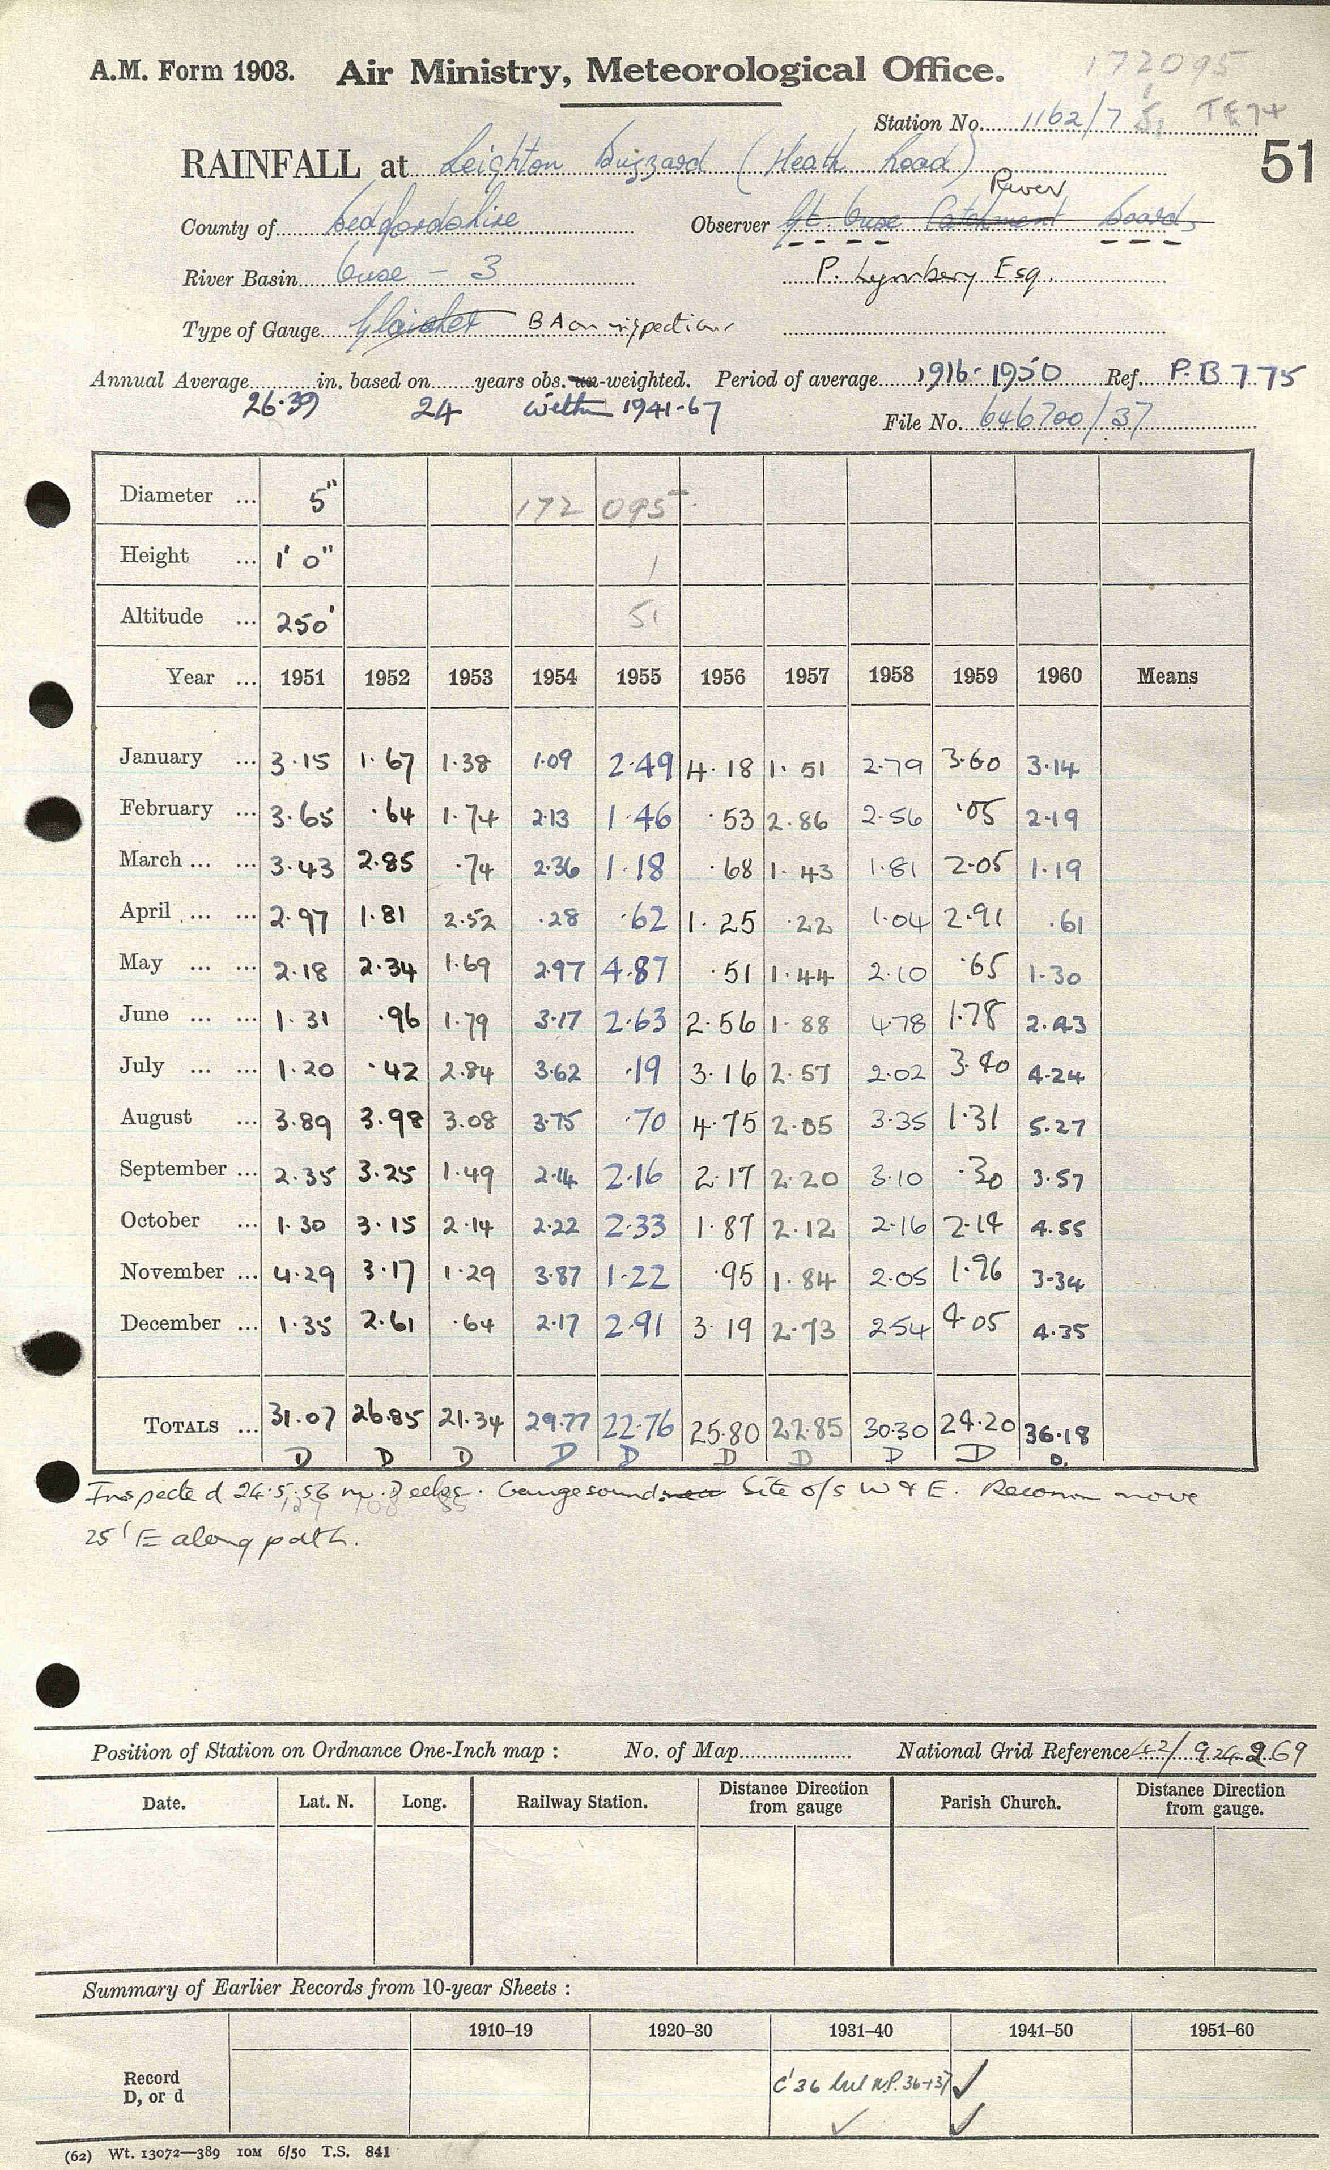 A.M. Form 1903. Air Ministry, Meteorological Office. 172095
Station No. 1162/7 TE74
RAINFALL at Leighton Buzzard (Heath Road) 51
River
County of Bedfordshire Observer Gt. Ouse Catchment Board
River Basin Ouse - 3 P. Lymbery Esq.
Type of Gauge Glaisher BA on inspection
Annual Average in. based on years obs. un-weighted. Period of average 1916-1950 Ref. P.B 775
26.39 24 within 1941-67
File No. 646700/37
Diameter ... 5" 172 095
Height ... 1' 0" 1
Altitude ... 250' 51
Year ... 1951 1952 1953 1954 1955 1956 1957 1958 1959 1960 Means
January ... 3.15 1.67 1.38 1.09 2.49 4.18 1.51 2.79 3.60 3.14
February ... 3.65 .64 1.74 2.13 1.46 .53 2.86 2.56 .05 2.19
March ... ... 3.43 2.85 .74 2.36 1.18 .68 1.43 1.81 2.05 1.19
April ... ... 2.97 1.81 2.52 .28 .62 1.25 .22 1.04 2.91 .61
May ... ... 2.18 2.34 1.69 2.97 4.87 .51 1.44 2.10 .65 1.30
June ... ... 1.31 .96 1.79 3.17 2.63 2.56 1.88 4.78 1.78 2.43
July ... ... 1.20 .42 2.84 3.62 .19 3.16 2.57 2.02 3.40 4.24
August ... 3.89 3.98 3.08 3.75 .70 4.75 2.05 3.35 1.31 5.27
September ... 2.35 3.25 1.49 2.14 2.16 2.17 2.20 3.10 .30 3.57
October ... 1.30 3.15 2.14 2.22 2.33 1.87 2.12 2.16 2.14 4.55
November ... 4.29 3.17 1.29 3.87 1.22 .95 1.84 2.05 1.96 3.34
December ... 1.35 2.61 .64 2.17 2.91 3.19 2.73 2.54 4.05 4.35
TOTALS ... 31.07 26.85 21.34 29.77 22.76 25.80 22.85 30.30 24.20 36.18
D D D D D D D D D D.
Inspected 24.5.56 Gauge sound. Site o/s W & E. Recomm move
25' E along path.
Position of Station on Ordnance One-Inch map : No. of Map National Grid Reference 42/ 924 269
Date. Lat. N. Long. Railway Station. Distance Direction from gauge Parish Church. Distance Direction from gauge.
Summary of Earlier Records from 10-year Sheets :
1910–19 1920–30 1931–40 1941–50 1951–60
Record
D, or d
(62) Wt. 13072—389 10M 6/50 T.S. 841